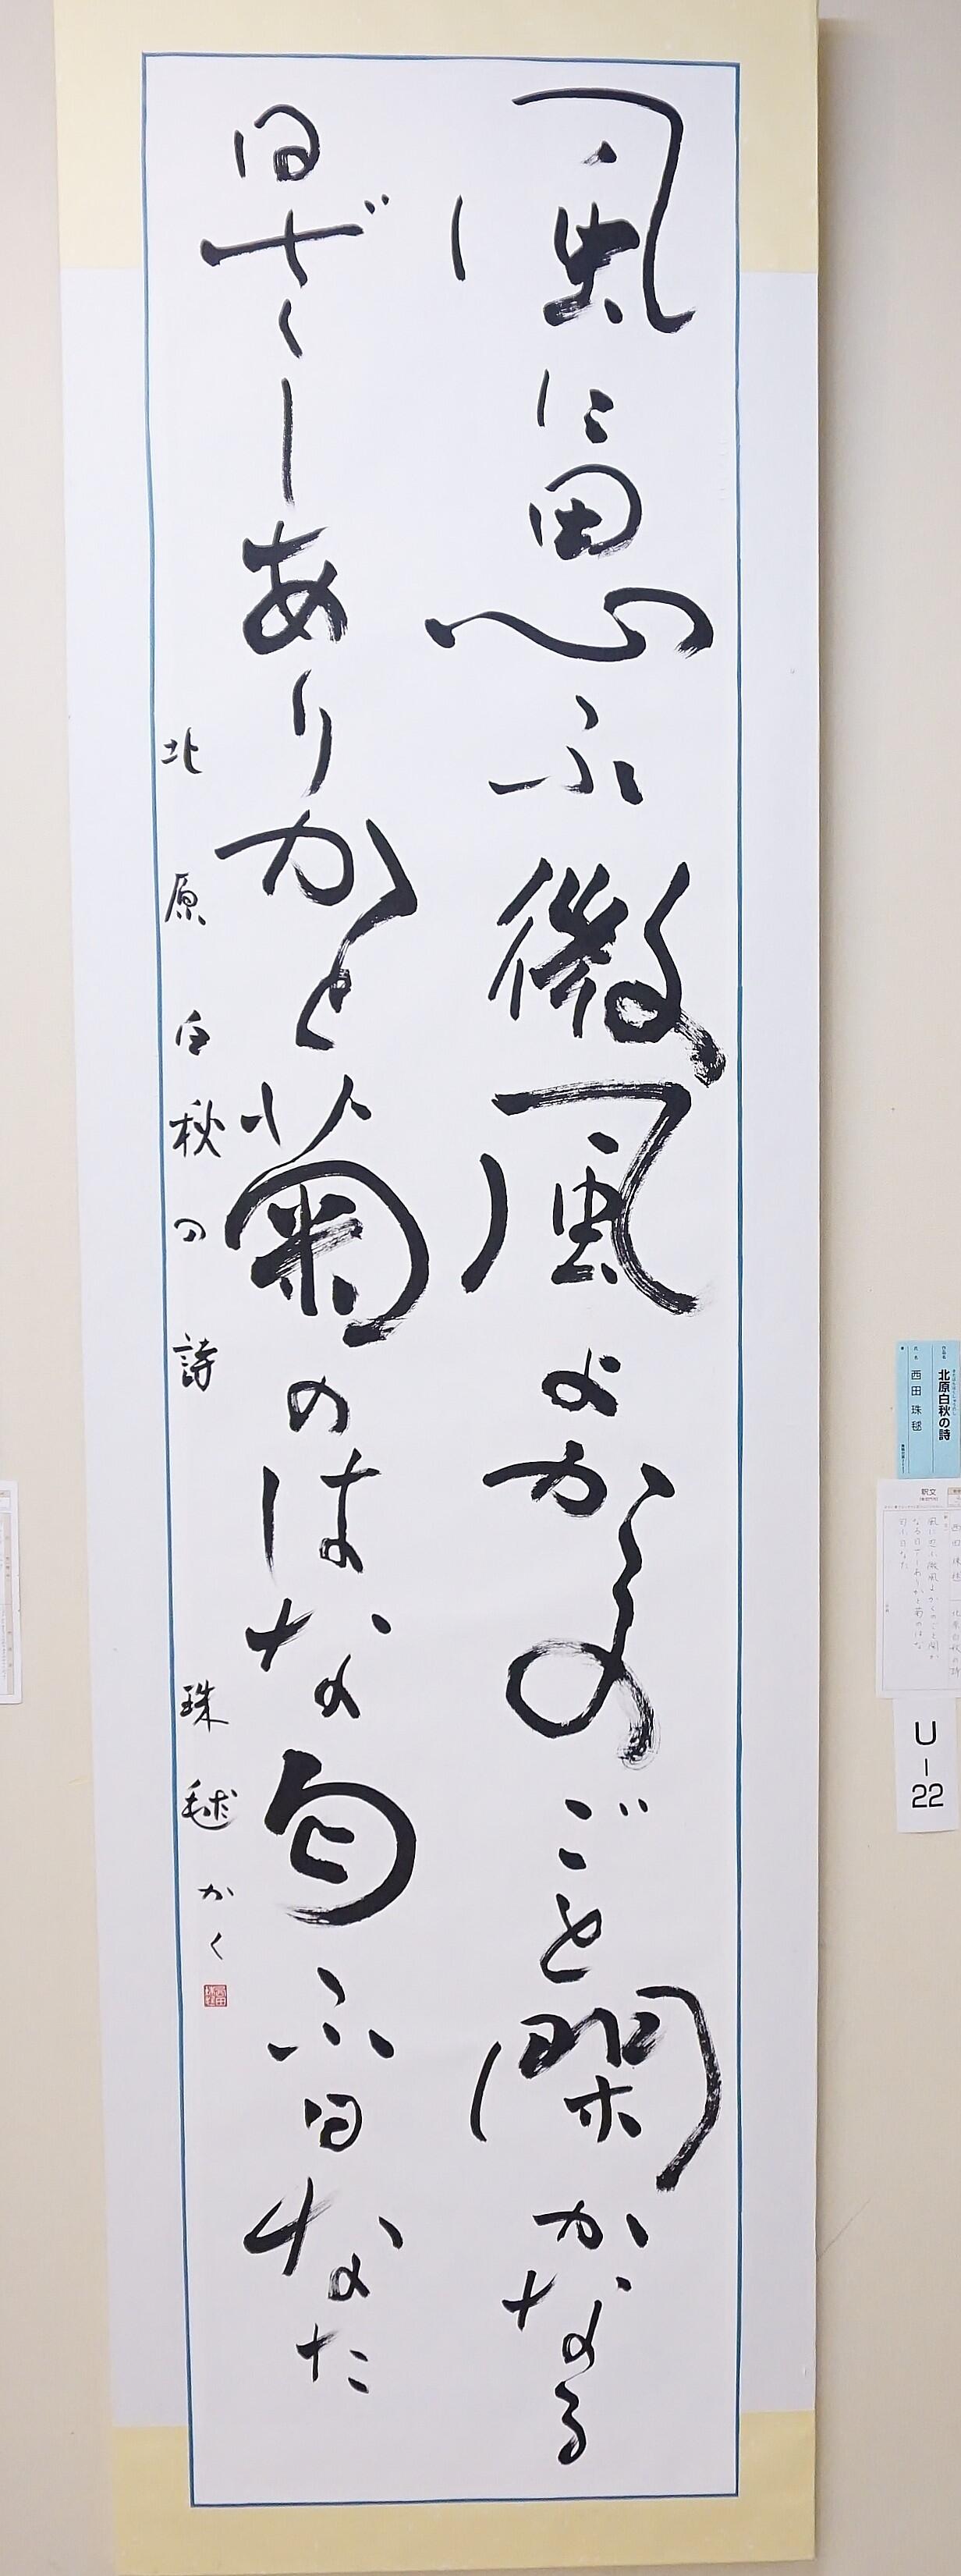 風に思ふ微風よかくのごと閑かなる
日ざしありかと菊のはな匂ふ日なた
北原白秋の詩 珠毬かく
北原白秋の詩
西田 珠毬
釈文
西田 珠毬 北原白秋の詩
風に思ふ微風よかくのごと閑か
なる日ざしありかと菊のはな
匂ふ日なた
U-22